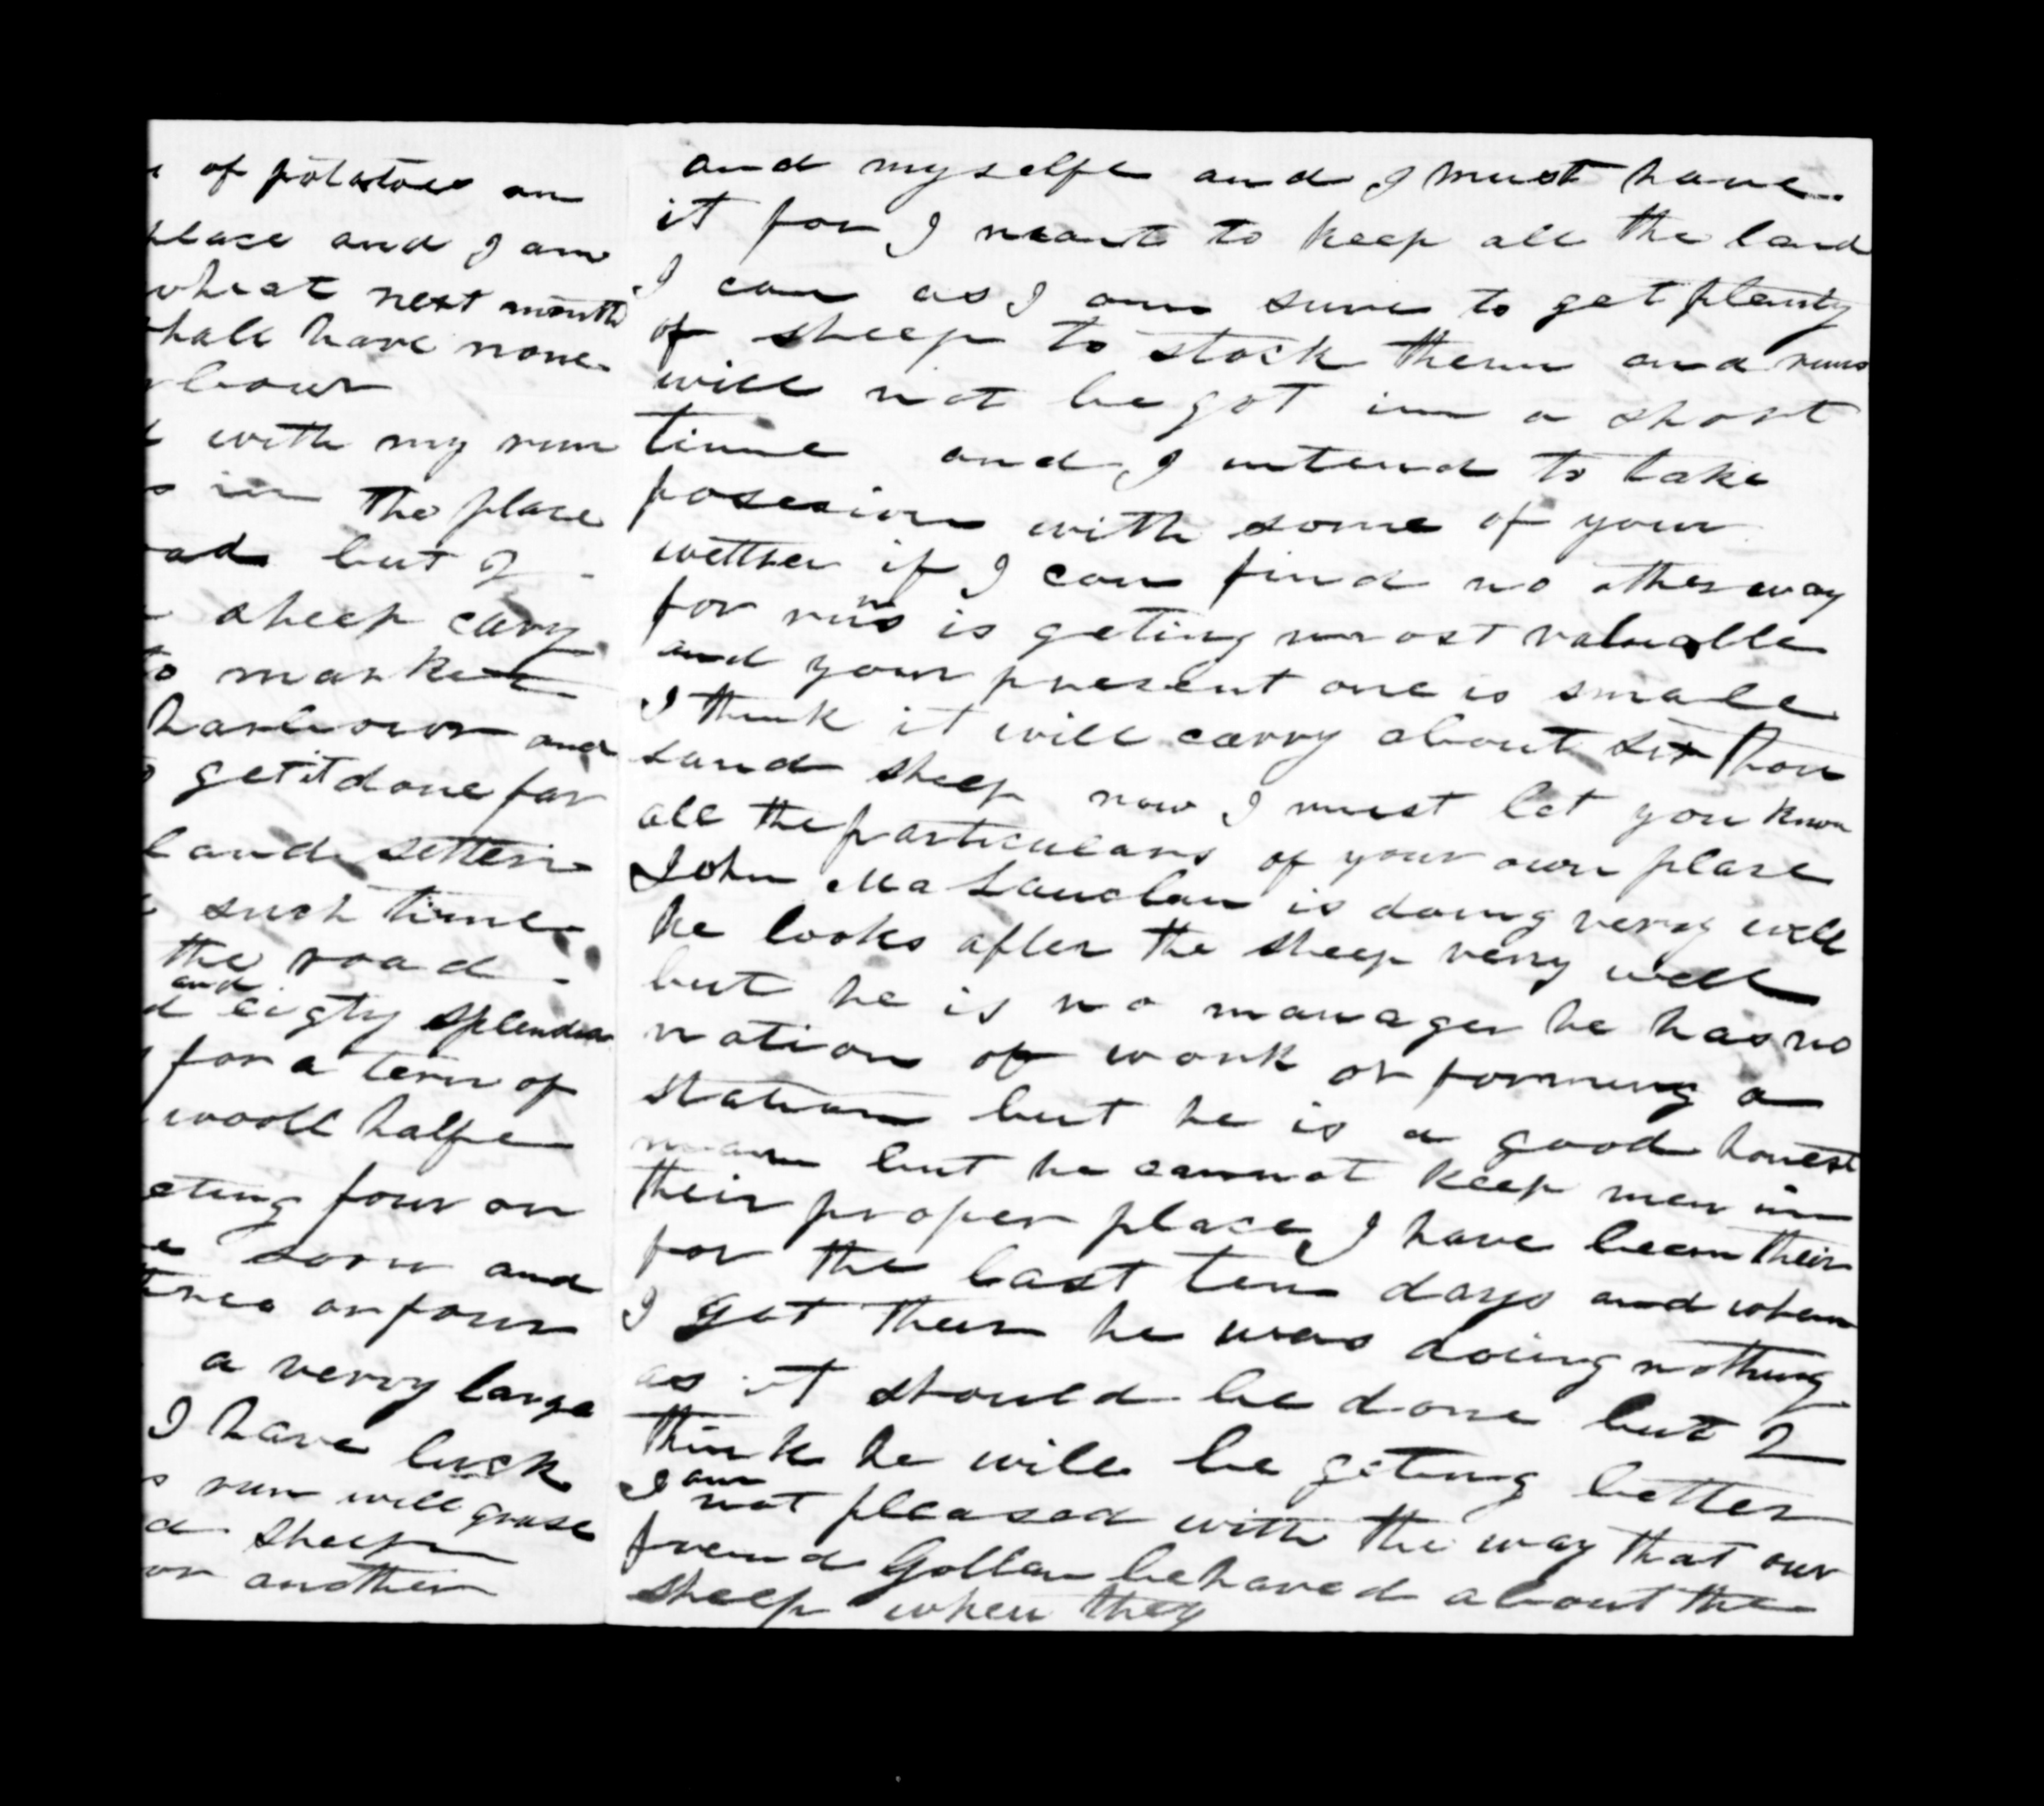 of potatoes an
place and I am
wheat next month
hall have none
rbour
with my run
s in the place
ad but I
sheep cary
to market
harbour and
get it done for
land setteri
such time
the road
and
d eigty splendia
for a tern of
wooll halfe
eting four or
soon and
tree or four
a verry large
I have luck
s run will grase
d sheep
or another
and myselfe and I must have
it for I meant to keep all the land
I can as I am sure to get plenty
of sheep to stock them and runs
will not be got in a short
time and I intend to take
posesion with some of your
wether if I can find no other way
for runs is geting most valuable
and your present one is smale
I think it will carry about six thou
sand sheep now I must let you know
all the particulars of your own plase
John Ma Lauclan is doing very well
he looks after the sheep very well
but he is no manager he has no
notion of work or forming a
station but he is a good honest
man but he cannot keep men in
their proper place I have been their
for the last ten days and when
I got their he was doing nothing
as it should be done but I
think he will be geting better
I am not pleased with the way that our
freind Gollan behaved about the
sheep when they